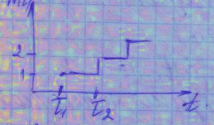 2
1
t₁ t₂ t